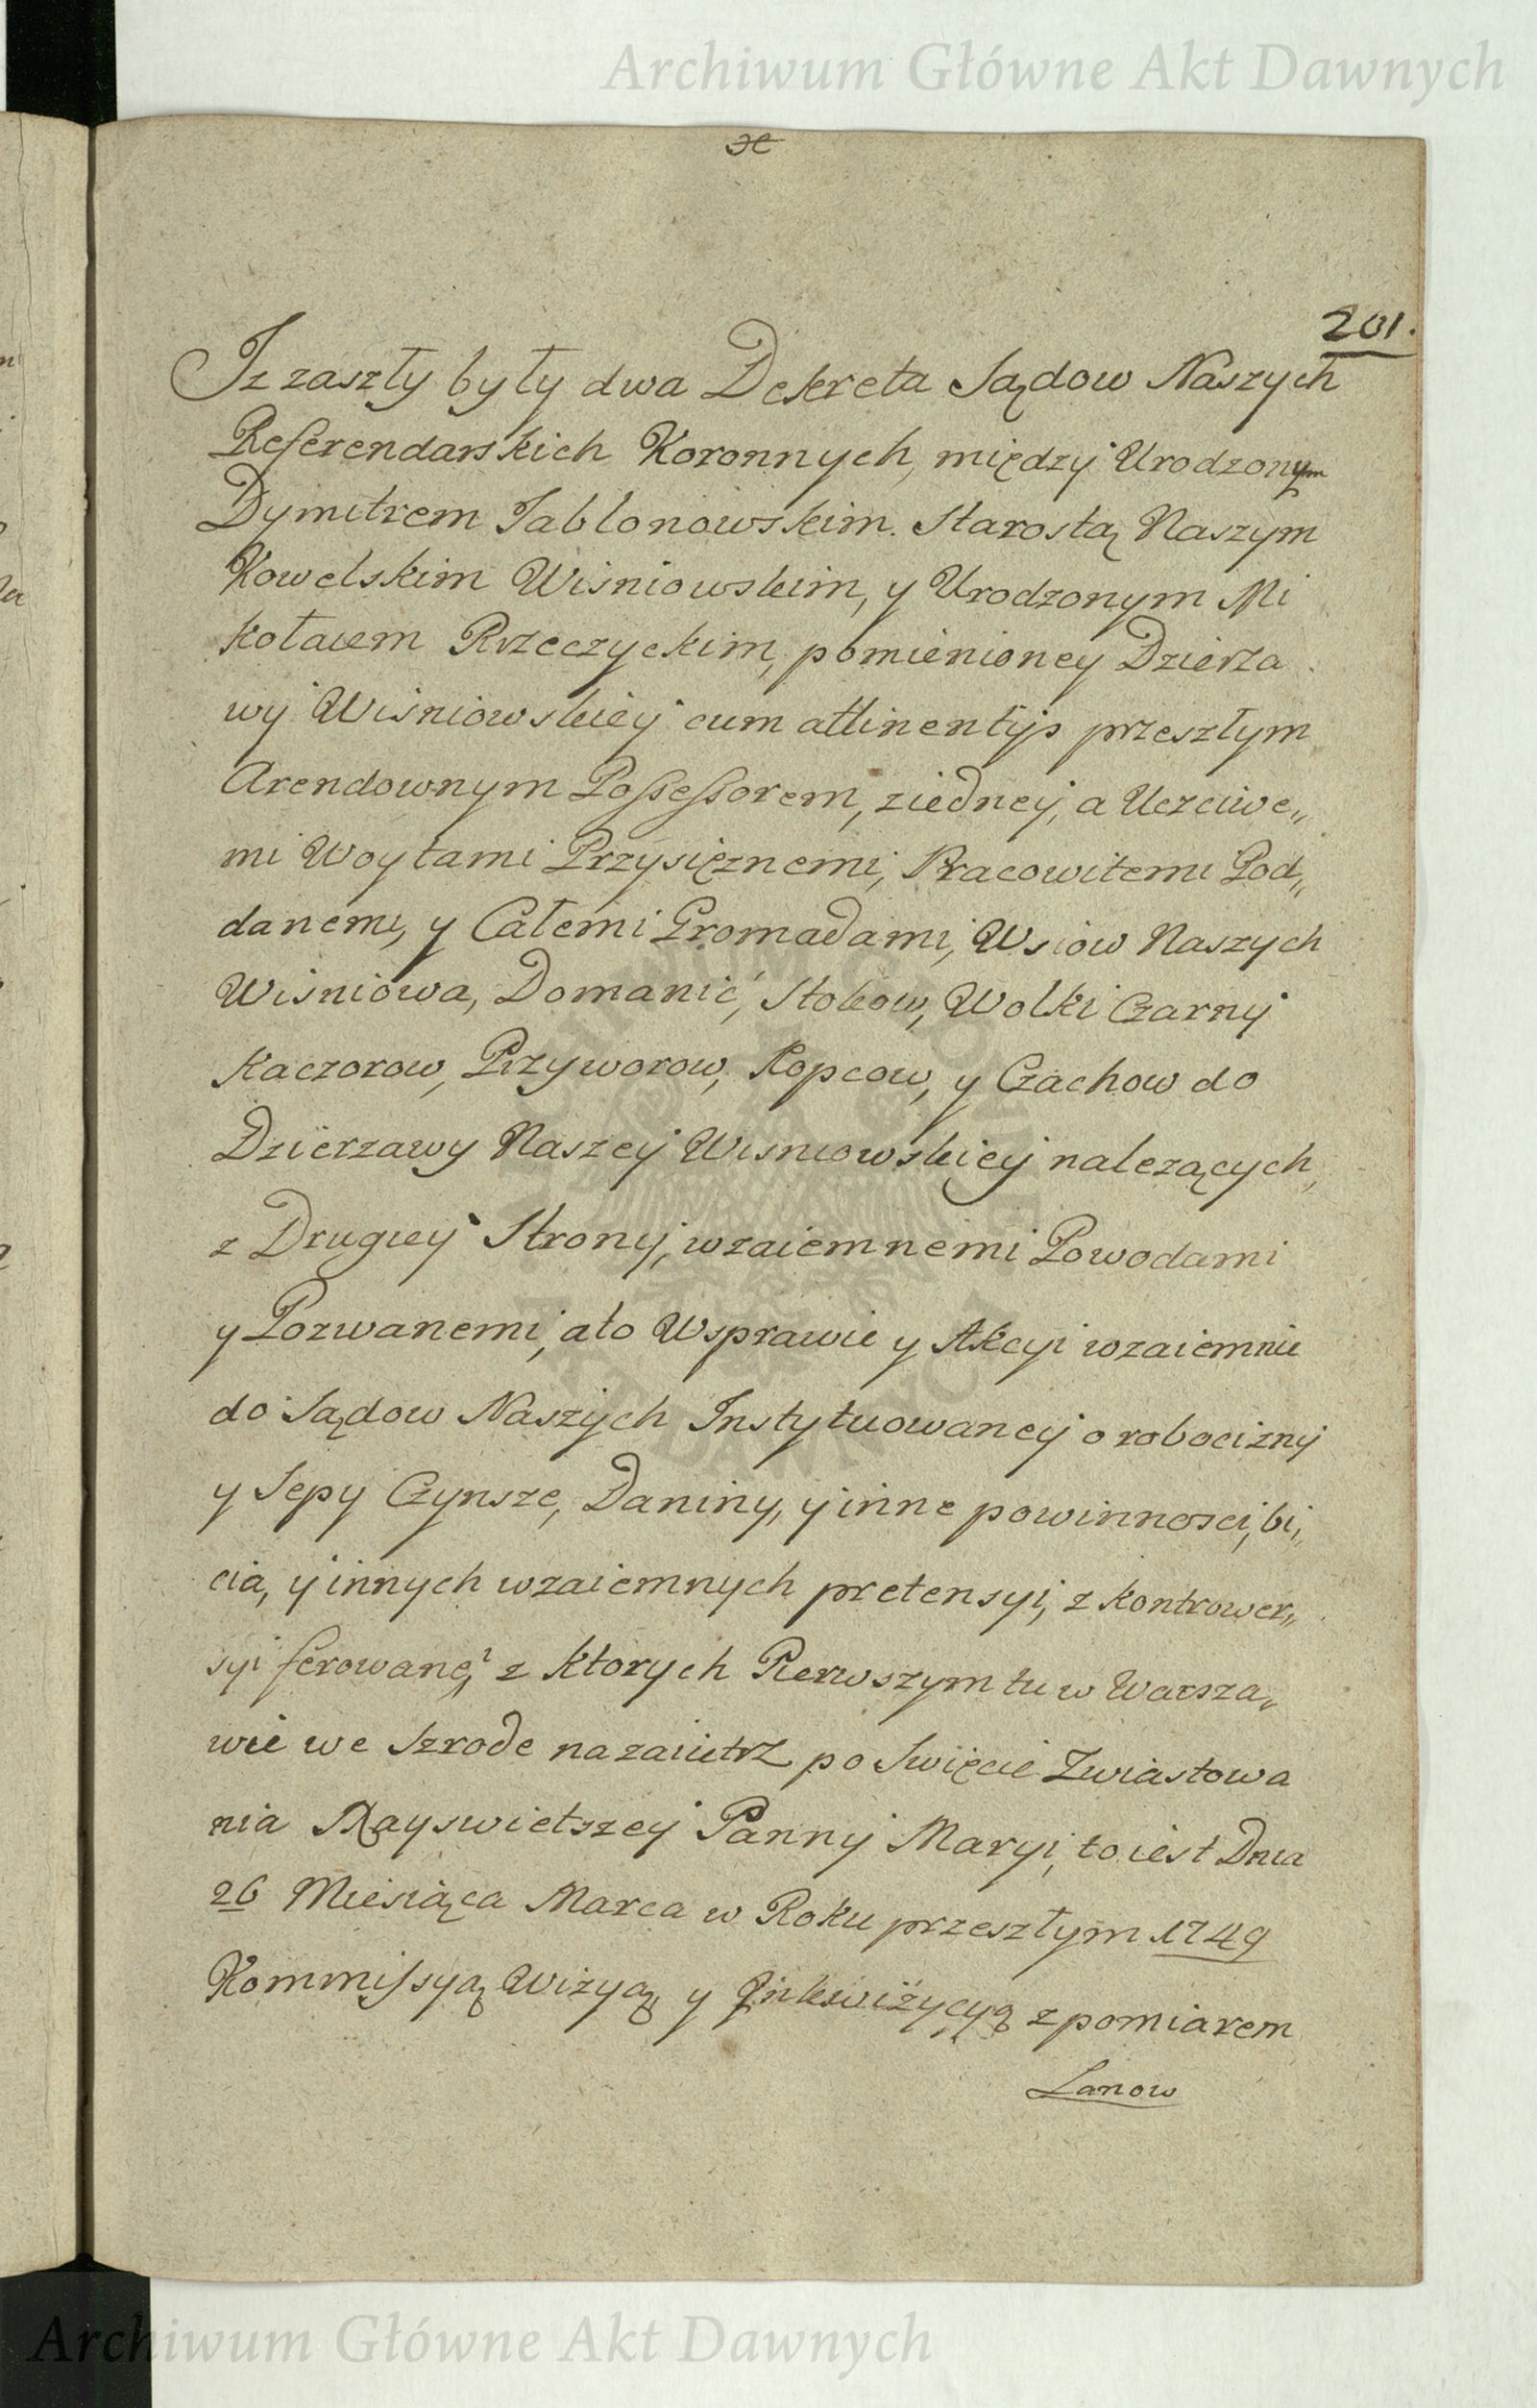 Archiwum Główne Akt Dawnych
201.
Iz zaszły były dwa Dekreta Sądow Naszych
Referendarskich Koronnych, między Urodzonym
Dymitrem Jabłonowskim. Starostą Naszym
Kowelskim Wiśniowskim, y Urodzonym Mi
kołaiem Rzeczyckim, pomienioney Dzierza
wy Wiśniowskiey cum attinentijs przeszłym
Arendownym Possessorem, ziedney, a Uczciwe„
mi Woytami Przysięznemi, Pracowitemi Pod„
danemi, y Całemi Gromadami, Wsiow Naszych
Wiśniowa, Domanić, Stokow, Wolki Czarny
Kaczorow, Przyworow, Kopcow, y Czachow do
Dzierzawy Naszey Wisniowskiey nalezących,
z Drugiey Strony, wzaiemnemi Powodami
y Pozwanemi, ato Wsprawie y Akcyi wzaiemnie
do Sądow Naszych Instytuowaney o robocizny
y Sepy Czynsze, Daniny, y inne powinnosci, bi„
cia, y innych wzaiemnych pretensyi, z kontrower„
syi ferowane, z ktorych Pierwszym tu w Warsza„
wie we Szrode nazaiutrz po Swięcie Zwiastowa
nia Nayswietszey Panny Maryi, to iest Dnia
26 Miesiąca Marca w Roku przeszłym 1749
Kommissyą Wizyą, y Inkwizycyą z pomiarem
Lanow
Archiwum Główne Akt Dawnych